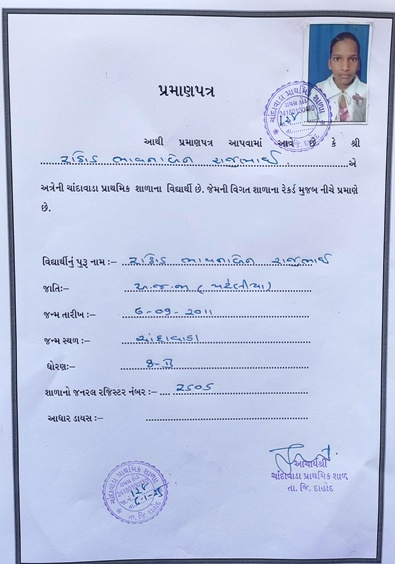 પ્રમાણપત્ર
આથી પ્રમાણપત્ર આપવામાં આવે છે કે શ્રી
રાઠોડ ભાવનાબેન રાજુભાઈ એ
અત્રેની ચાંદાવાડા પ્રાથમિક શાળાના વિદ્યાર્થી છે. જેમની વિગત શાળાના રેકર્ડ મુજબ નીચે પ્રમાણે
છે.
વિદ્યાર્થીનું પુરૂ નામ :- રાઠોડ ભાવનાબેન રાજુભાઈ
જાતિ:- અ.જ.જા (પટેલીયા)
જન્મ તારીખ :-
જન્મ સ્થળ :- ચાંદાવાડા
ધોરણ:- 8-B
શાળાનો જનરલ રજિસ્ટર નંબર :- 2505
આધાર ડાયસ :-
ચાંદાવાડા પ્રાથમિક શાળા
તા. જિ. દાહોદ
આચાર્યશ્રી
ચાંદાવાડા પ્રાથમિક શાળ
તા. જિ. દાહોદ